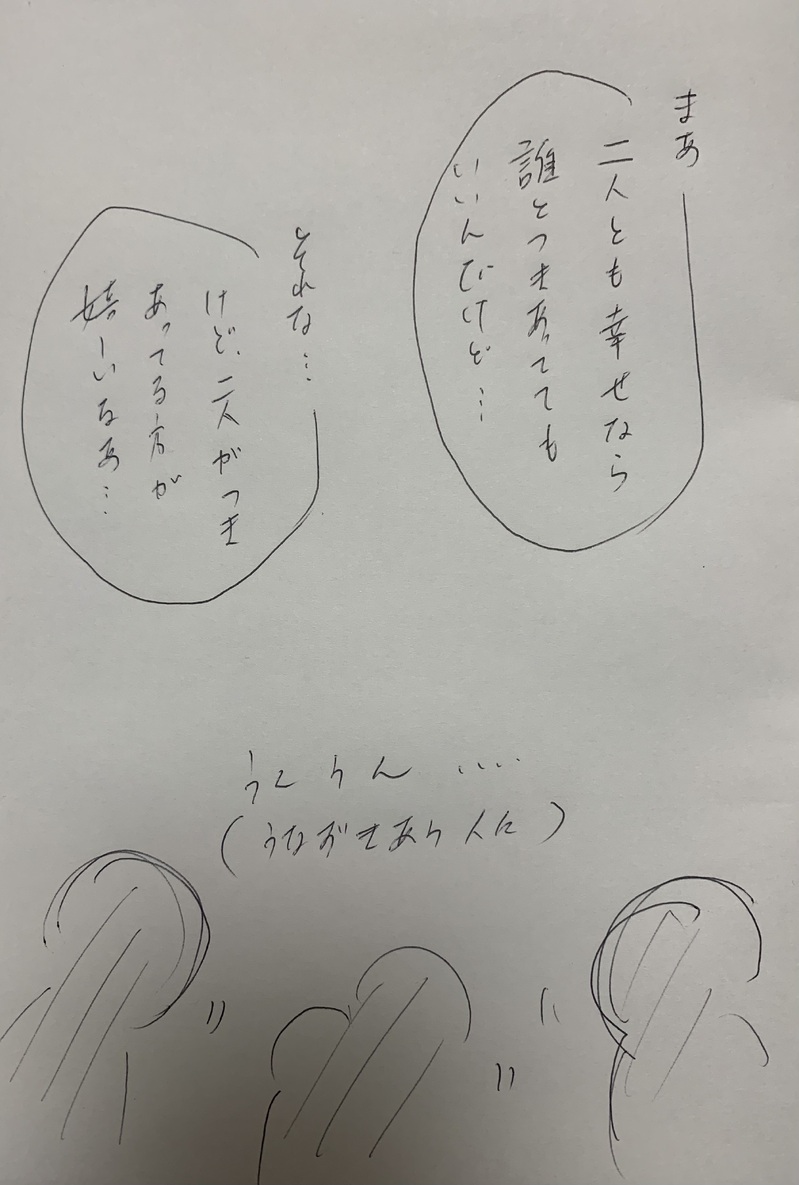 まあ
二人とも幸せなら
誰とつきあってても
いいんだけど…
それな…
けど、二人がつき
あってる方が
嬉しいなあ…
うんうん....
(うなずきあう人に)